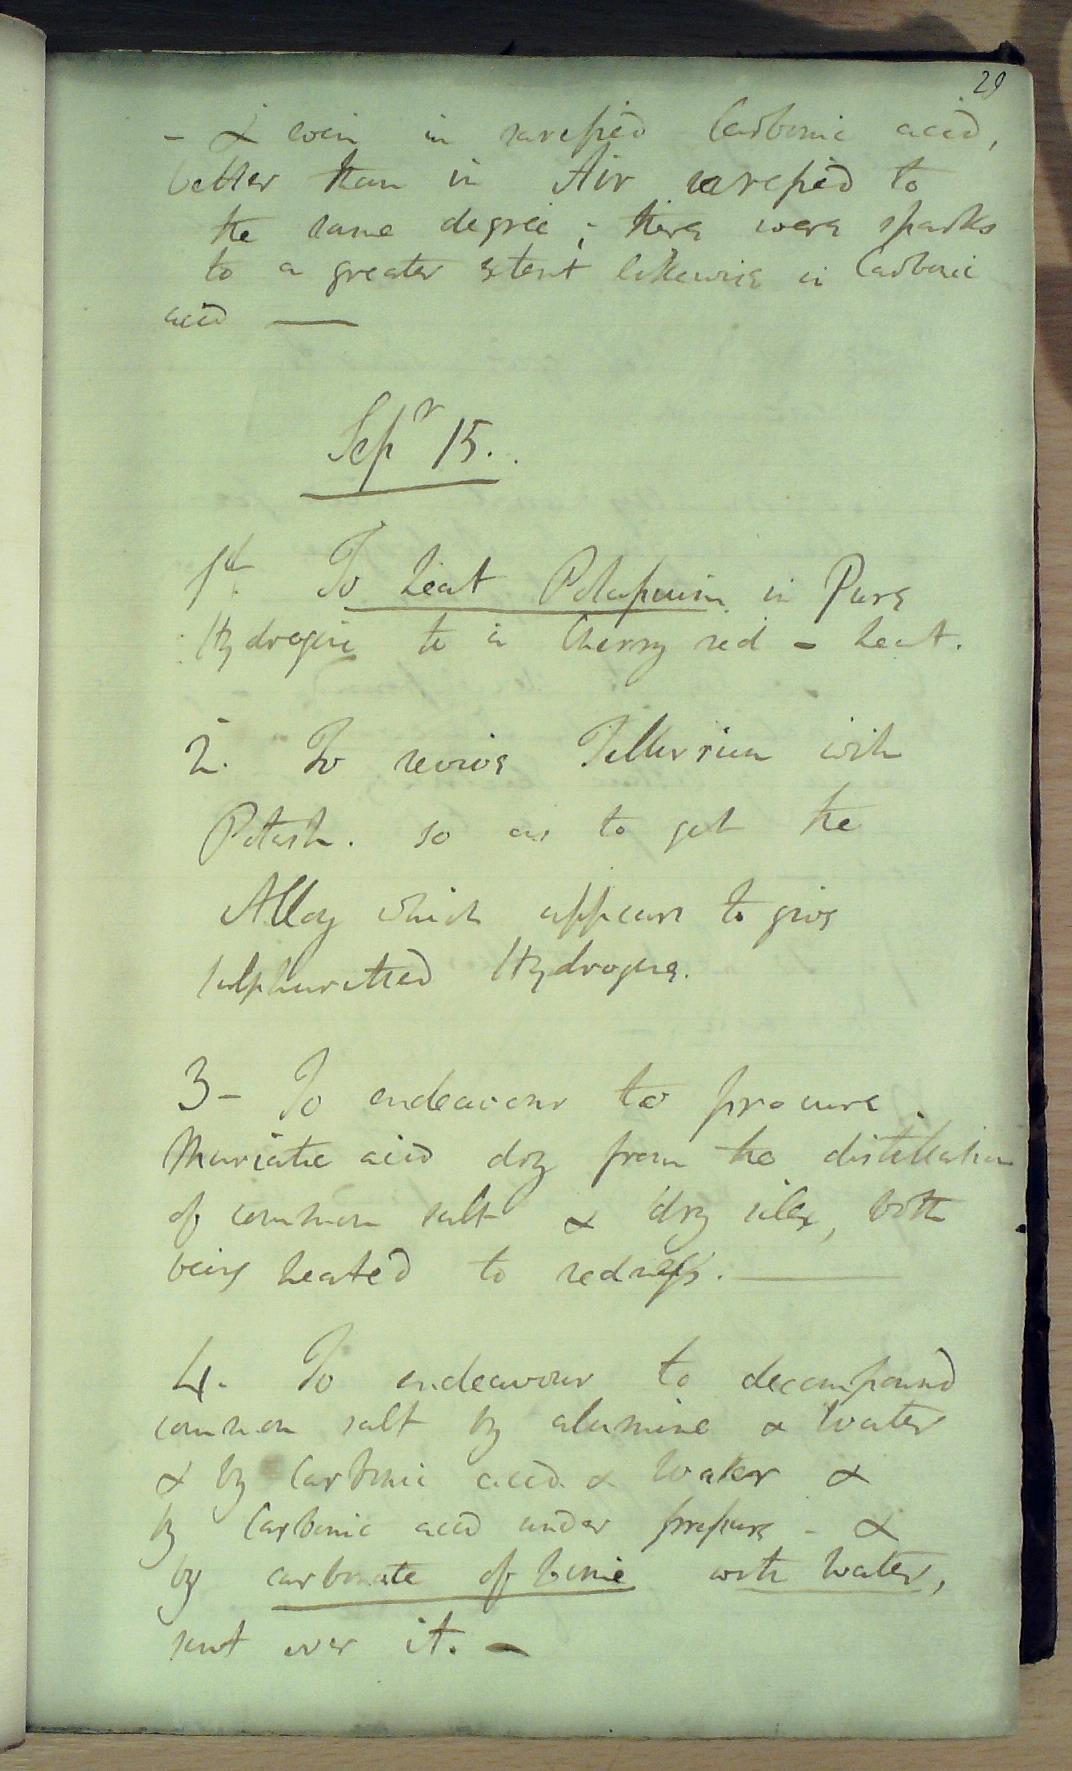 29
- & even in rarefied Carbonic acid,
better than in Air rarefied to
the same degree; there were sparks
to a greater extent likewise in Carbonic
acid —
Sepr 15.
1st. To heat Potassium in Pure
Hydrogene to a Cherry red - heat.
2. To revive Tellurium with
Potash. so as to get the
Alloy which appears to give
sulphuretted Hydrogene.
3- To endeavour to procure
Muriatic acid dry from the distillation
of common salt & dry silex, both
being heated to redness. —
4. To endeavour to decompound
common salt by alumine & water
& by Carbonic acid & water &
by Carbonic acid under pressure - &
by carbonate of lime with water,
sent over it. -